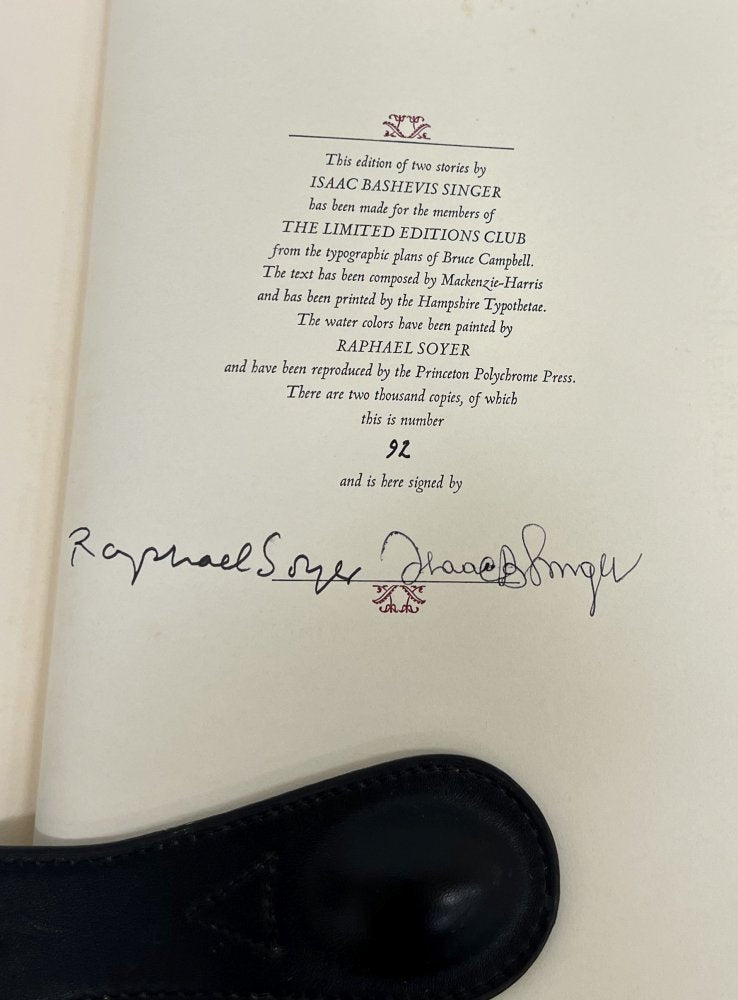 This edition of two stories by
ISAAC BASHEVIS SINGER
has been made for the members of
THE LIMITED EDITIONS CLUB
from the typographic plans of Bruce Campbell.
The text has been composed by Mackenzie-Harris
and has been printed by the Hampshire Typothetae.
The water colors have been painted by
RAPHAEL SOYER
and have been reproduced by the Princeton Polychrome Press.
There are two thousand copies, of which
this is number
92
and is here signed by
Raphael Soyer Isaac B Singer